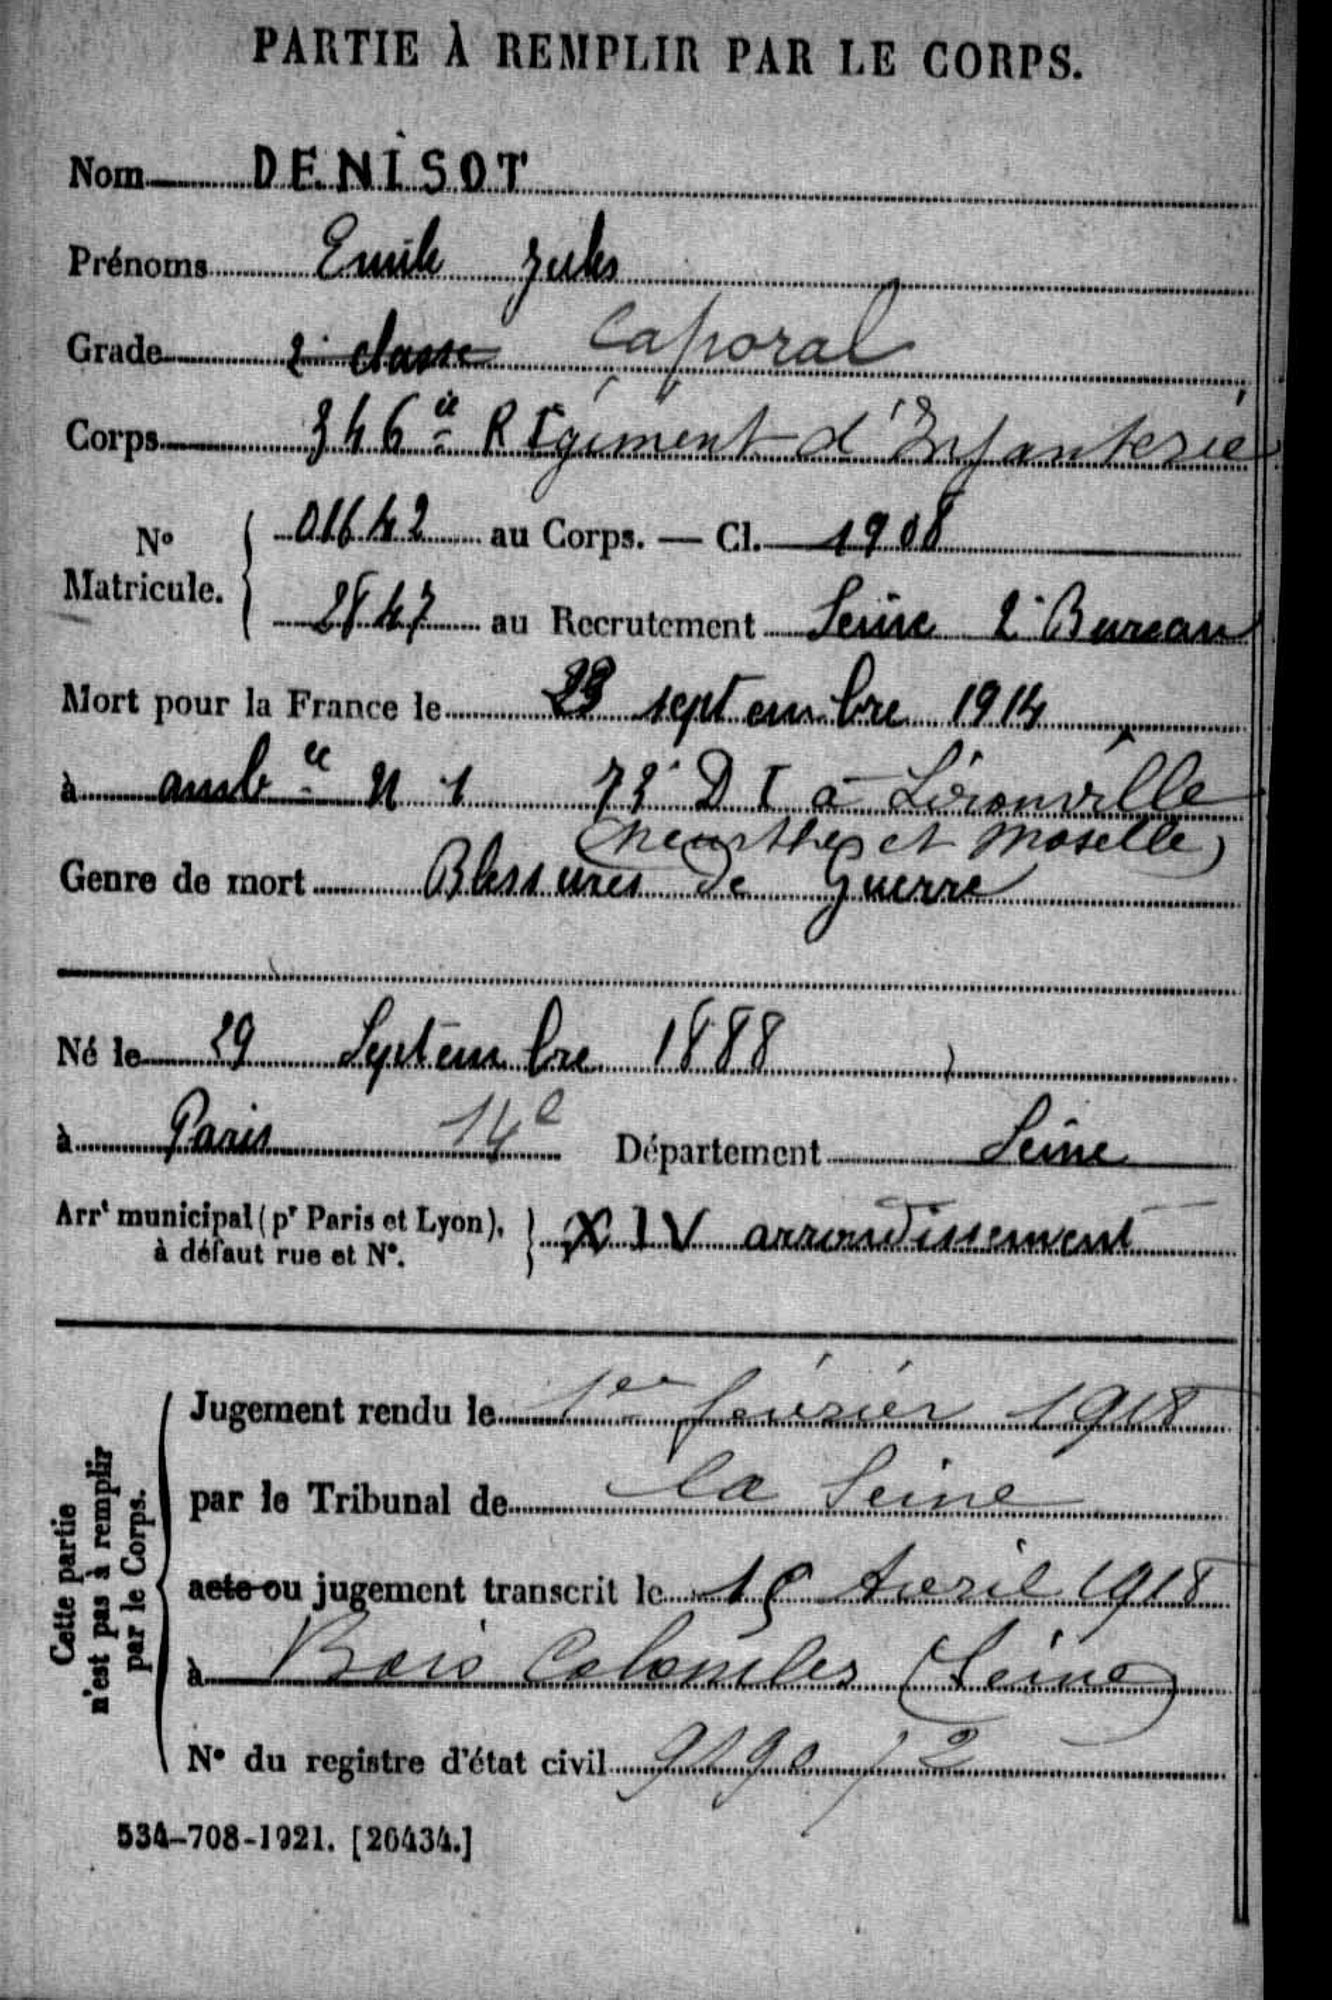 PARTIE À REMPLIR PAR LE CORPS.
Nom DENISOT
Prénoms Emile Jules
Grade 2e classe Caporal
Corps 346e Régiment d'Infanterie
No Matricule. { 01642 au Corps. — Cl. 1908
2847 au Recrutement Seine 2e Bureau
Mort pour la France le 23 septembre 1914
à ambce N 1 73e D I à Lérouville
(Meurthe et Moselle)
Genre de mort Blessures de Guerre
Né le 29 Septembre 1888
à Paris 14e Département Seine
Arrt municipal (pr Paris et Lyon), } XIV arrondissement
à défaut rue et No.
Cette partie
n'est pas à remplir
par le Corps.
Jugement rendu le 1er février 1918
par le Tribunal de la Seine
acte ou jugement transcrit le 15 Avril 1918
à Bois Colombes (Seine)
No du registre d'état civil
534-708-1921. [26434.]